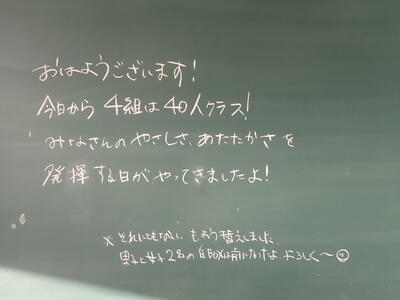 おはようございます!
今日から 4組は40人クラス!
みなさんの やさしさ、あたたかさ を
発揮 する日が やってきましたよ!
※ それにともない、もよう替えしました。
男子と女子2名の 白BOXは前になったよ よろしく〜